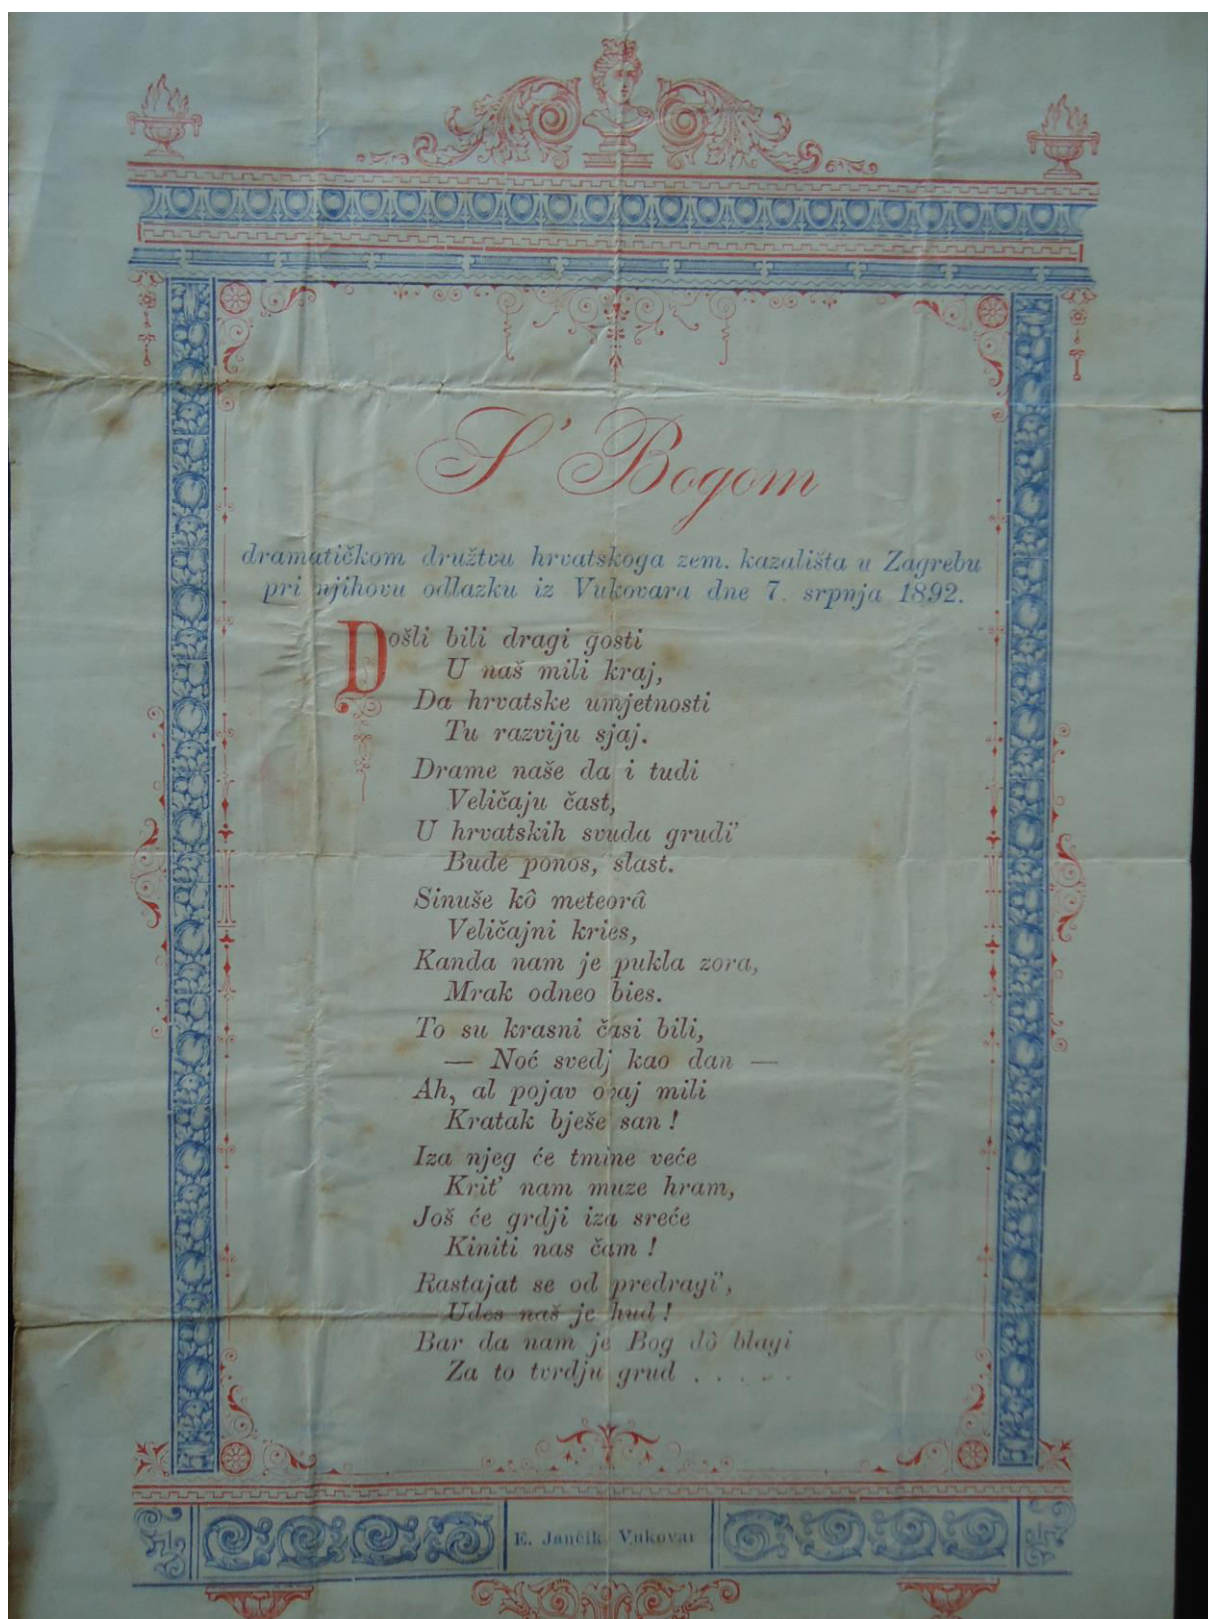 S' Bogom
dramatičkom družtvu hrvatskoga zem. kazališta u Zagrebu
pri njihovu odlazku iz Vukovara dne 7. srpnja 1892.
Došli bili dragi gosti
U naš mili kraj,
Da hrvatske umjetnosti
Tu razviju sjaj.
Drame naše da i tudi
Veličaju čast,
U hrvatskih svuda grudi'
Bude ponos, slast.
Sinuše kô meteorâ
Veličajni kries,
Kanda nam je pukla zora,
Mrak odneo bies.
To su krasni časi bili,
— Noć svedj kao dan —
Ah, al pojav ovaj mili
Kratak bješe san !
Iza njeg će tmine veće
Krit' nam muze hram,
Još će grdji iza sreće
Kiniti nas čam !
Rastajat se od predragi',
Udes naš je hud !
Bar da nam je Bog dô blagi
Za to tvrdju grud . . . . .
E. Jančik Vukovar